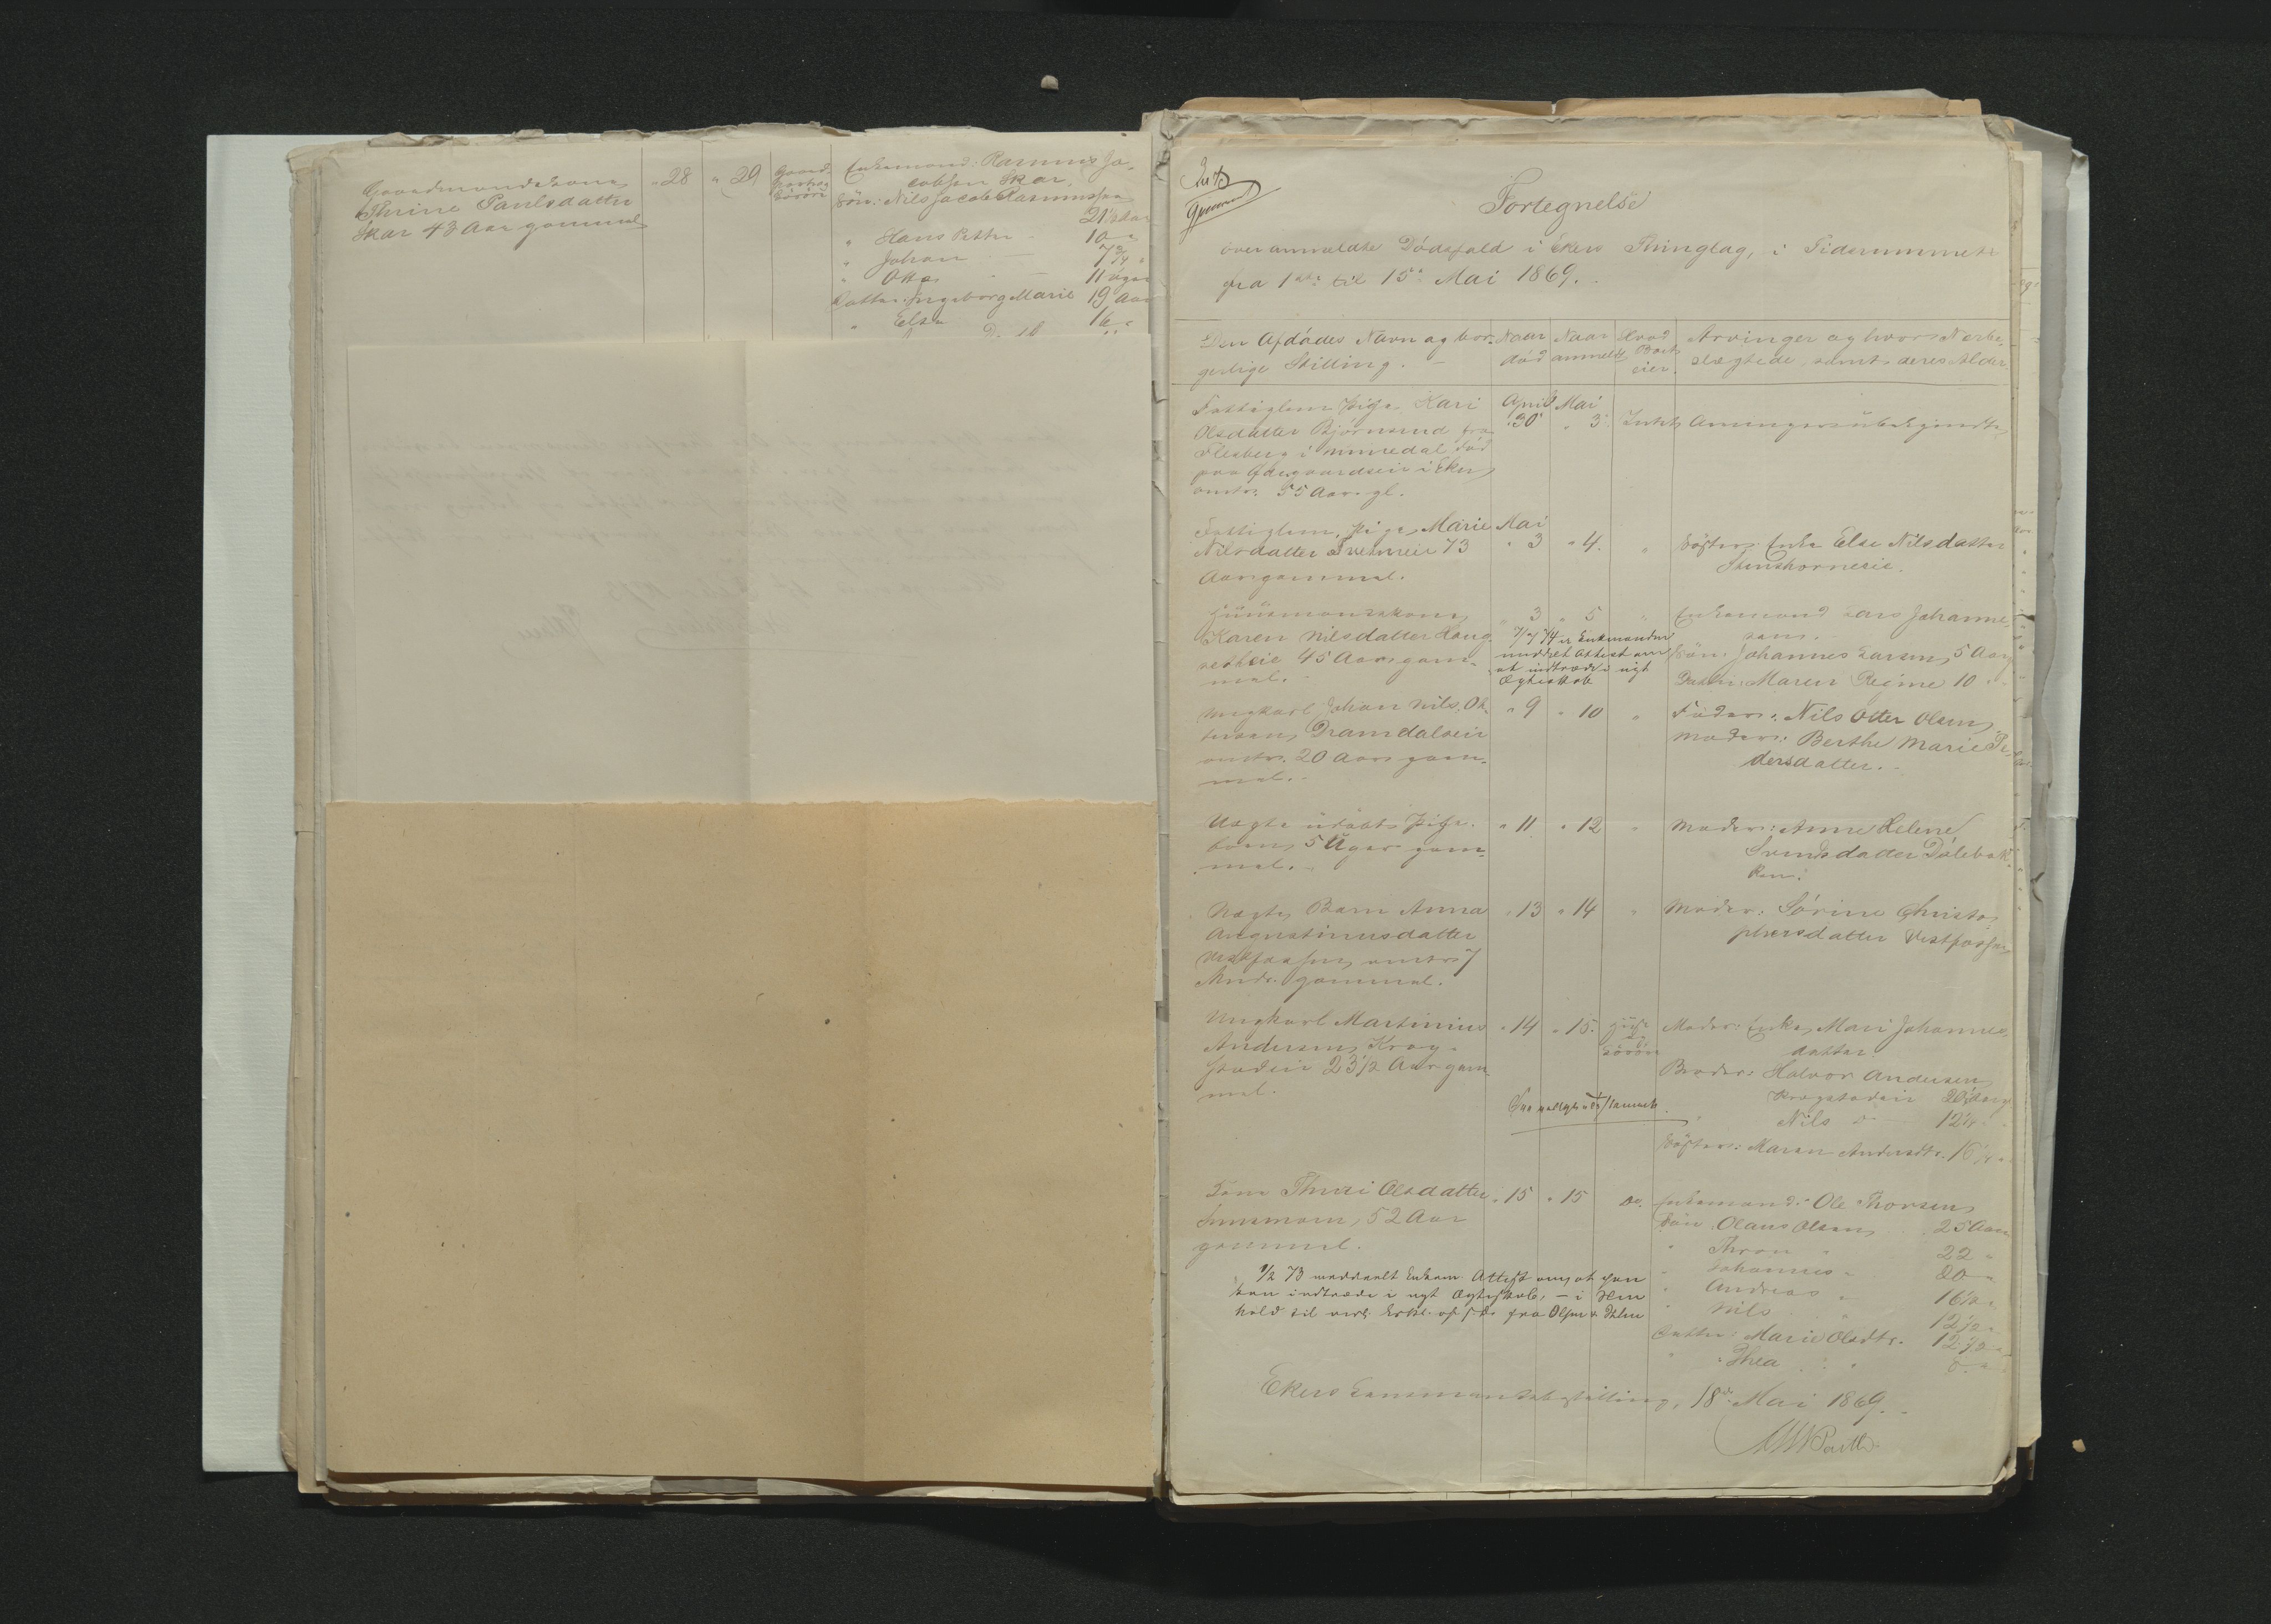 Gaardmandskone
Thrine Paulsdatter
Skar 43 Aar gammel
" 28 " 29
Enkemand: Rasmus Ja-
cobsen Skar
Søn: Nils Jacob Rasmussen
21½ Aar
" Hans Petter — 10 "
" Johan — 7¾ "
" Otto — 11 Uger
Datter: Ingeborg Marie 19 Aar
" Else 16 "
Fortegnelse
over anmeldte Dødsfald i Ekers Thinglag, i Tidsrummet
fra 1ste til 15de Mai 1869.
Den Afdødes Navn og bor-
gerlige Stilling.
Naar død
Naar anmeldt
Hvad Boet eier
Arvinger og hvor Nærbe-
slægtede, samt deres Alder
Fattiglem Pige Kari
Olsdatter Bjørnerud fra
Flesberg i Numedal død
paa eie i Eker
omtr. 55 Aar gl.
April 30 Mai " 3 Intet Arvinger ubekjendte
Fattiglem, Pige Marie
Nilsdatter 73
Aar gammel.
Mai " 3 " 4. "
Søster: Enke Else Nilsdatter
Huusmandskone
Karen Nilsdatter Haug-
eie 45 Aar gam-
mel.
" 3 " 5 "
Enkemand Lars Johanne-
sen.
Søn: Johannes Larsen 5 Aar
Datter: Maren Regine 10 "
74 er Enkemanden
meddelt Attest om
at indtræde i nyt
Ægteskab
Ungkarl Johan Nils Ot-
tersen Dramdalseie
omtr. 20 Aar gam-
mel.
" 9 " 10 "
Fader: Nils Otter Olsen
Moder: Berthe Marie Pe-
dersdatter.
Uægte udøbt Pige-
barn 5 Uger gam-
mel.
" 11 " 12 "
Moder: Anne Helene
Svendsdatter Dølebak-
ken.
Uægte Barn Anna
Augustinusdatter
Vestfossen omtr. 7
Mndr. gammel.
" 13 " 14 "
Moder: Sørine Christo-
phersdatter Vestfossen
Ungkarl Martinius
Andersen Krog-
stadeie 23½ Aar gam-
mel.
" 14 " 15.
Moder: Enke Mari Johannes-
datter
Broder: Halvor Andersen
Krogstadeie
Nils
Søster: Maren Andersdtr.
Kone Thuri Olsdatter
52 Aar
gammel.
" 15 " 15 Do.
Enkemand: Ole Thorsen
Søn: Olaus Olsen 25 Aar
" Thron " 22 "
" Johannes " 20 "
" Andreas " 16½ "
" Nils 12½ "
Datter: Marie Olsdtr. 12½ "
" Thea " 8 "
½ 73 meddeelt Enkem. Attest om, at han
kan indtræde i nyt Ægteskab, — i Hen-
hold til Erkl. af s. D. fra Olsen &
Ekers Lensmandsbestilling, 18de Mai 1869.